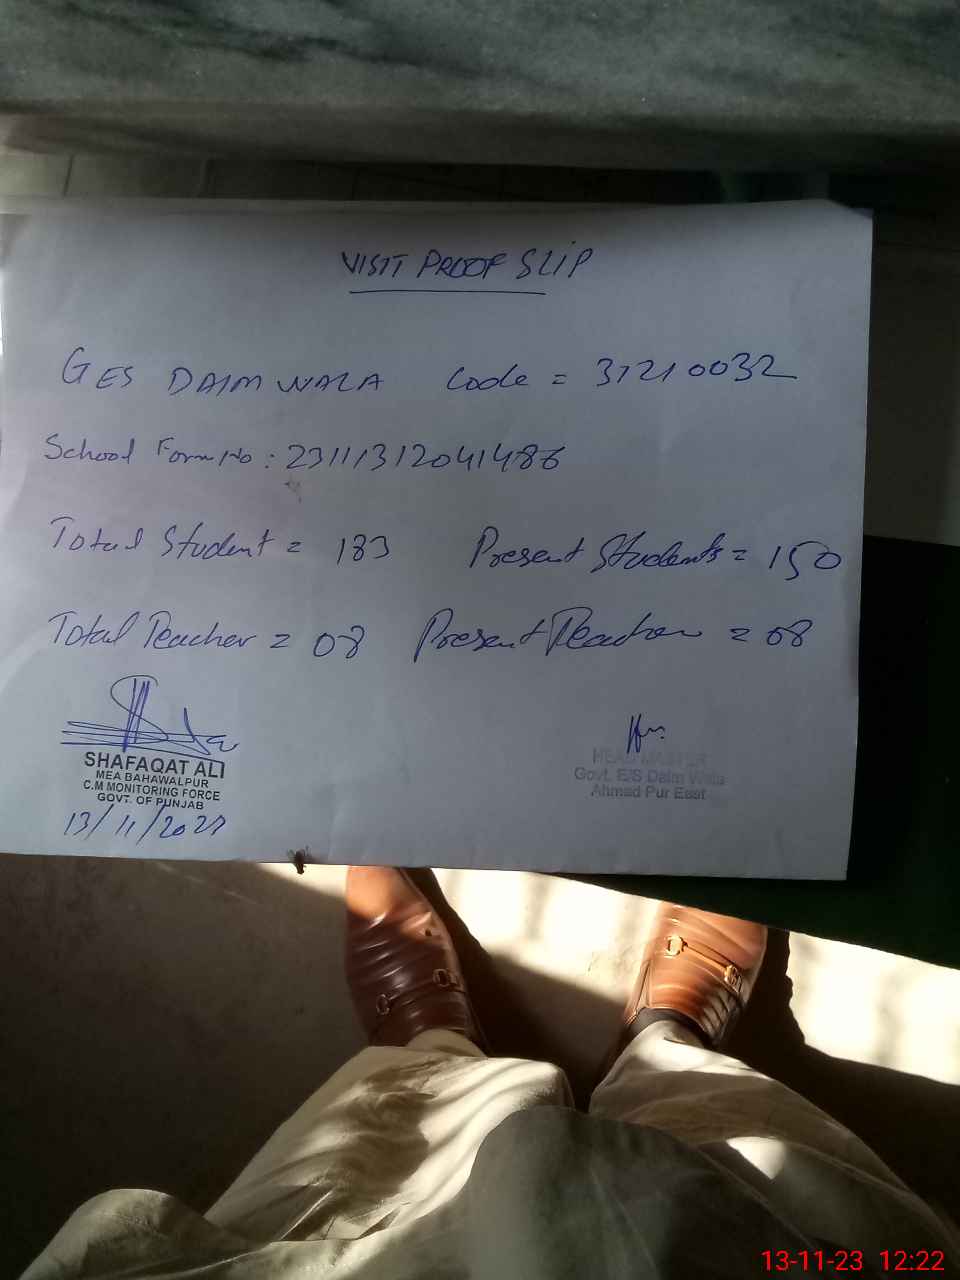 VISIT PROOF SLIP
GES DAIM WALA Code = 31210032
School Form No: 23111312041486
Total Student = 183 Present Students = 150
Total Teacher = 08 Present Teacher = 08
SHAFAQAT ALI
MEA BAHAWALPUR
C.M MONITORING FORCE
GOVT. OF PUNJAB
13/11/2023
HEAD MASTER
Govt. E/S Daim Wala
Ahmad Pur East
13-11-23 12:22